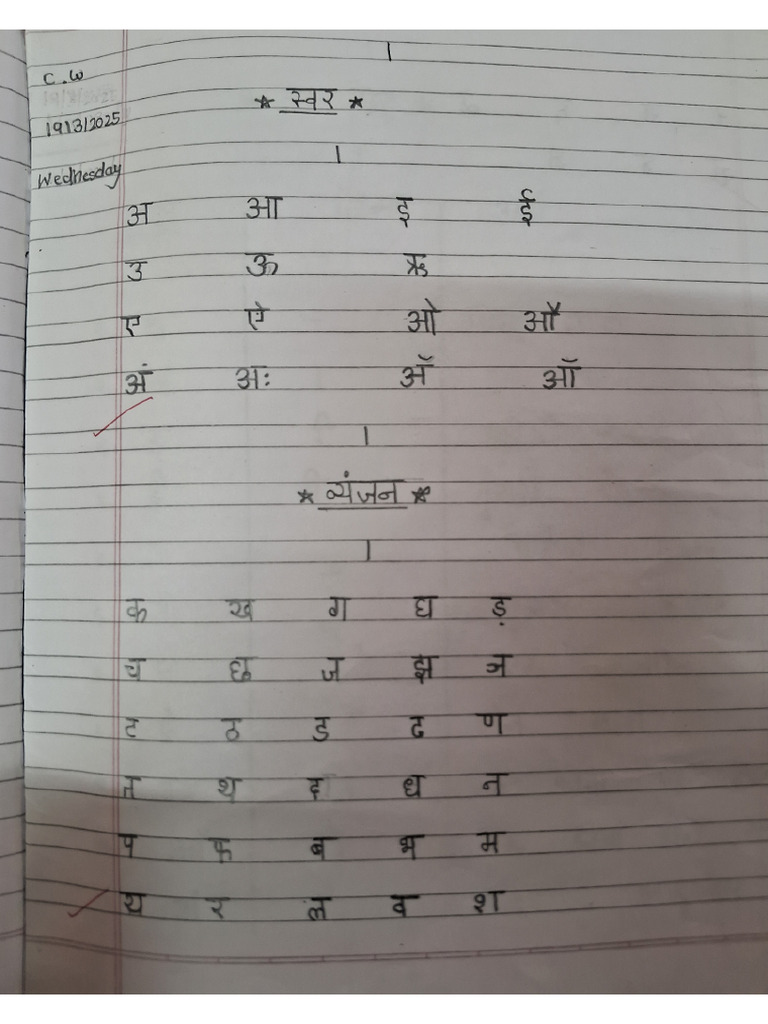 C.W
★ स्वर ★
19/3/2025
Wednesday
अ आ इ ई
उ ऊ ऋ
ए ऐ ओ औ
अं अः अँ ऑ
★ व्यंजन ★
क ख ग घ ड़
च छ ज झ ञ
ट ठ ड ढ ण
त थ द ध न
प फ ब भ म
य र ल व श